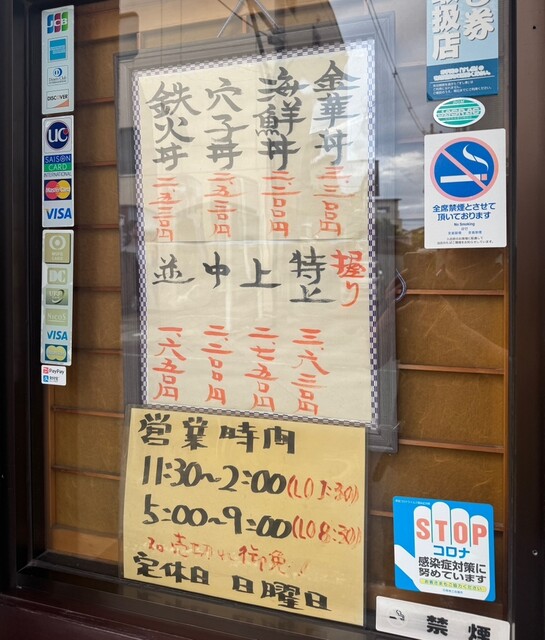 金華丼
二、三一〇円
海鮮丼
二、二〇〇円
穴子丼
二、五三〇円
鉄火丼
二、五三〇円
握り
特上
三、六三〇円
上
二、七五〇円
中
二、二〇〇円
並
一、六五〇円
営業時間
11:30〜2:00(LO1:30)
5:00〜9:00(LO8:30)
売切れ御免
定休日 日曜日
JCB
DISCOVER
UC
SAISON
CARD
INTERNATIONAL
MasterCard
VISA
DC
VISA
PayPay
し券
取扱店
全席禁煙とさせて
頂いております
No Smoking
STOP
コロナ
感染症対策に
努めています
禁煙